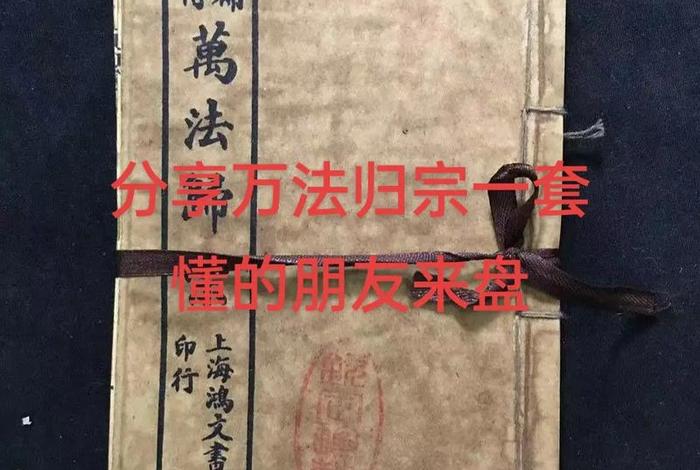 萬法歸
上海鴻文書
印行
分享万法归宗一套
懂的朋友来盘